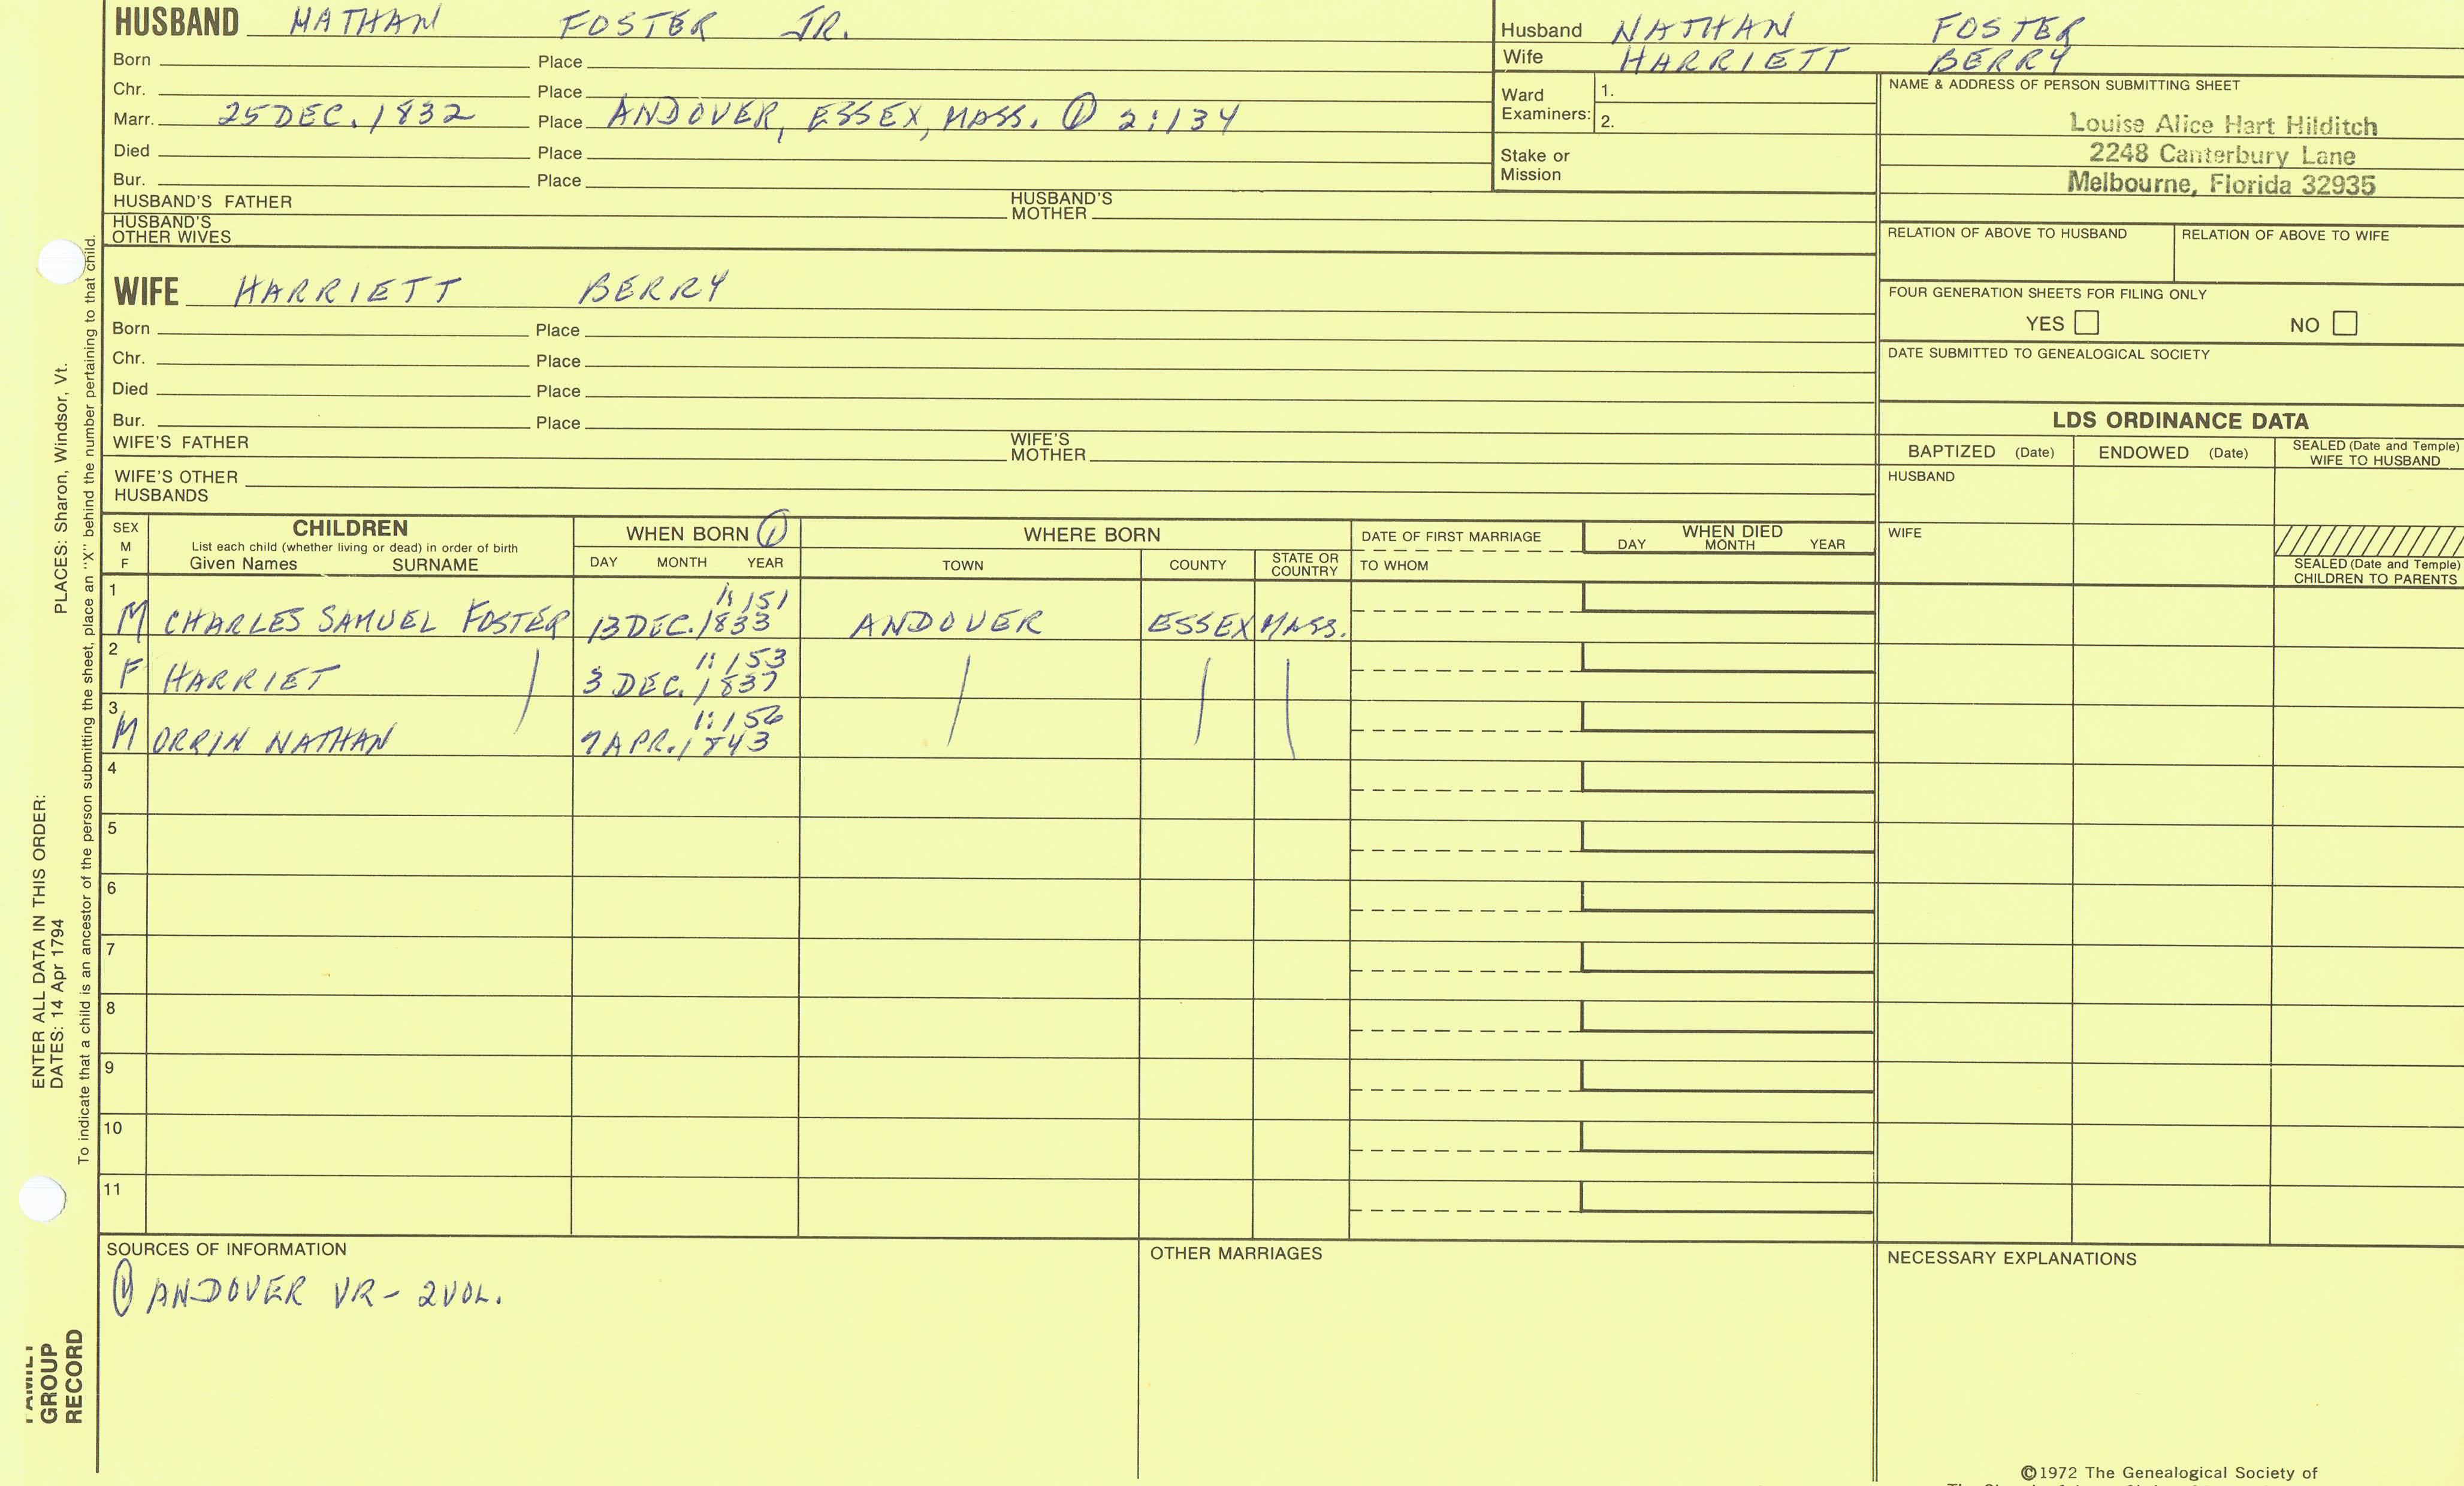 HUSBAND NATHAN FOSTER JR.
Born Place
Chr. Place
Marr. 25 DEC. 1832 Place ANDOVER, ESSEX, MASS. ① 2:134
Died Place
Bur. Place
HUSBAND'S FATHER HUSBAND'S MOTHER
HUSBAND'S OTHER WIVES
Husband NATHAN FOSTER
Wife HARRIETT BERRY
Ward Examiners: 1.
2.
Stake or Mission
NAME & ADDRESS OF PERSON SUBMITTING SHEET
Louise Alice Hart Hilditch
2248 Canterbury Lane
Melbourne, Florida 32935
RELATION OF ABOVE TO HUSBAND RELATION OF ABOVE TO WIFE
FOUR GENERATION SHEETS FOR FILING ONLY
YES NO
DATE SUBMITTED TO GENEALOGICAL SOCIETY
WIFE HARRIETT BERRY
Born Place
Chr. Place
Died Place
Bur. Place
WIFE'S FATHER WIFE'S MOTHER
WIFE'S OTHER HUSBANDS
LDS ORDINANCE DATA
BAPTIZED (Date) ENDOWED (Date) SEALED (Date and Temple) WIFE TO HUSBAND
HUSBAND
WIFE
SEALED (Date and Temple) CHILDREN TO PARENTS
SEX M F
CHILDREN
List each child (whether living or dead) in order of birth
Given Names SURNAME
WHEN BORN ①
DAY MONTH YEAR
WHERE BORN
TOWN COUNTY STATE OR COUNTRY
DATE OF FIRST MARRIAGE
TO WHOM
WHEN DIED
DAY MONTH YEAR
1 1:151
M CHARLES SAMUEL FOSTER 13 DEC. 1833 ANDOVER ESSEX MASS.
2 1:153
F HARRIET 3 DEC. 1837
3 1:156
M ORRIN NATHAN 7 APR. 1843
4
5
6
7
8
9
10
11
SOURCES OF INFORMATION
① ANDOVER VR - 2 VOL.
OTHER MARRIAGES
NECESSARY EXPLANATIONS
©1972 The Genealogical Society of
PLACES: Sharon, Windsor, Vt.
ENTER ALL DATA IN THIS ORDER:
DATES: 14 Apr 1794
To indicate that a child is an ancestor of the person submitting the sheet, place an "X" behind the number pertaining to that child.
FAMILY GROUP RECORD